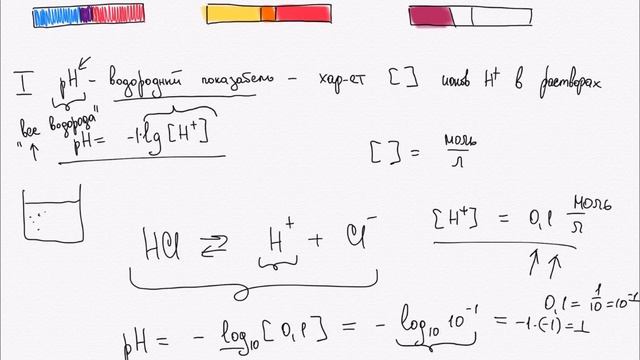 I pH - водородный показатель - хар-ет [ ] ионов H⁺ в растворах
"вес водорода"
pH = -1·lg[H⁺]
[ ] = моль/л
HCl ⇄ H⁺ + Cl⁻
[H⁺] = 0,1 моль/л
0,1 = 1/10 = 10⁻¹
pH = - log₁₀[0,1] = - log₁₀ 10⁻¹ = -1·(-1) = 1